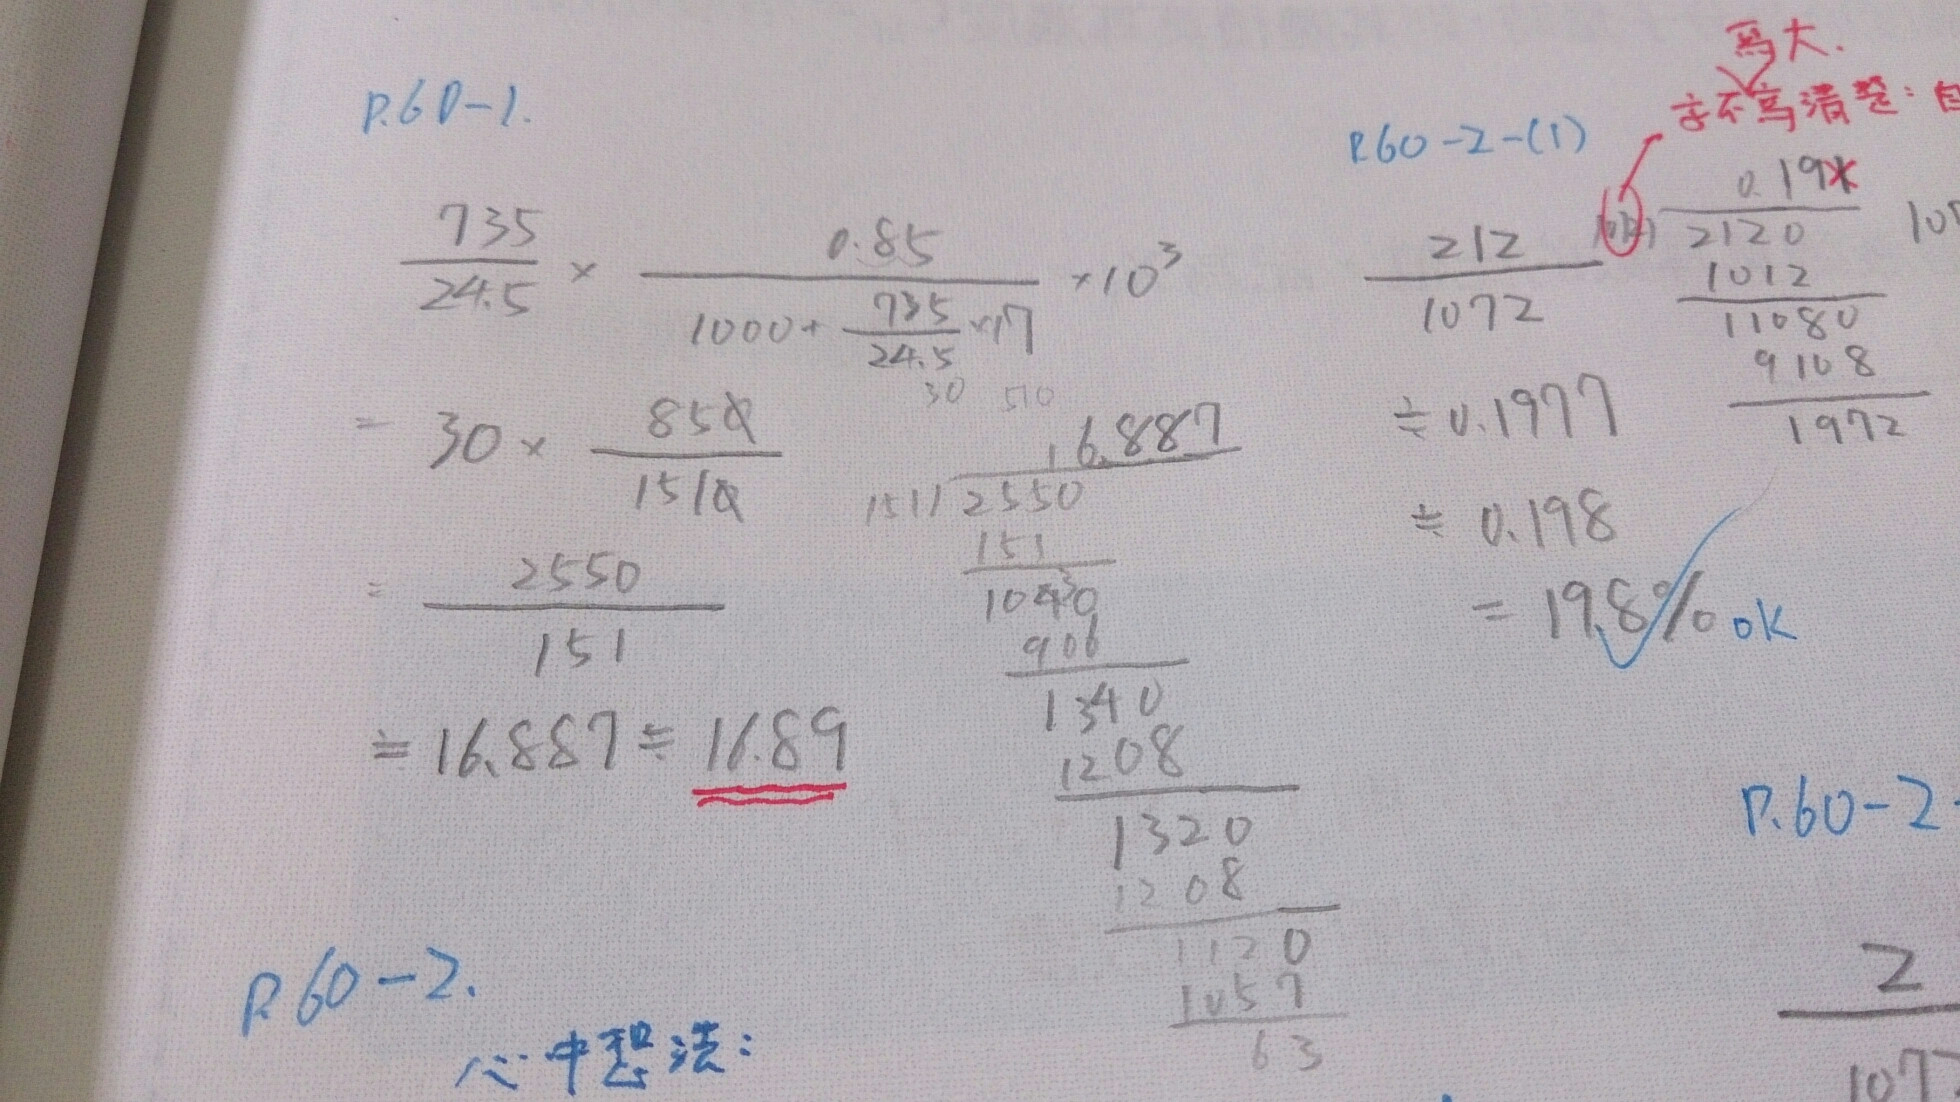 P.60-1.
735
24.5
×
0.85
1000+ 735/24.5 ×17
×10³
30 510
= 30 × 850/1510
= 2550/151
≒ 16.887 ≒ 16.89
16.887
151 2550
151
1040
906
1340
1208
1320
1208
1120
1057
63
P.60-2.
心中想法:
寫大.
字不寫清楚:自
P.60-2-(1)
212
1072
≒ 0.1977
≒ 0.198
= 19.8% OK
0.19
2120
1012
11080
9108
1972
P.60-2
2
107